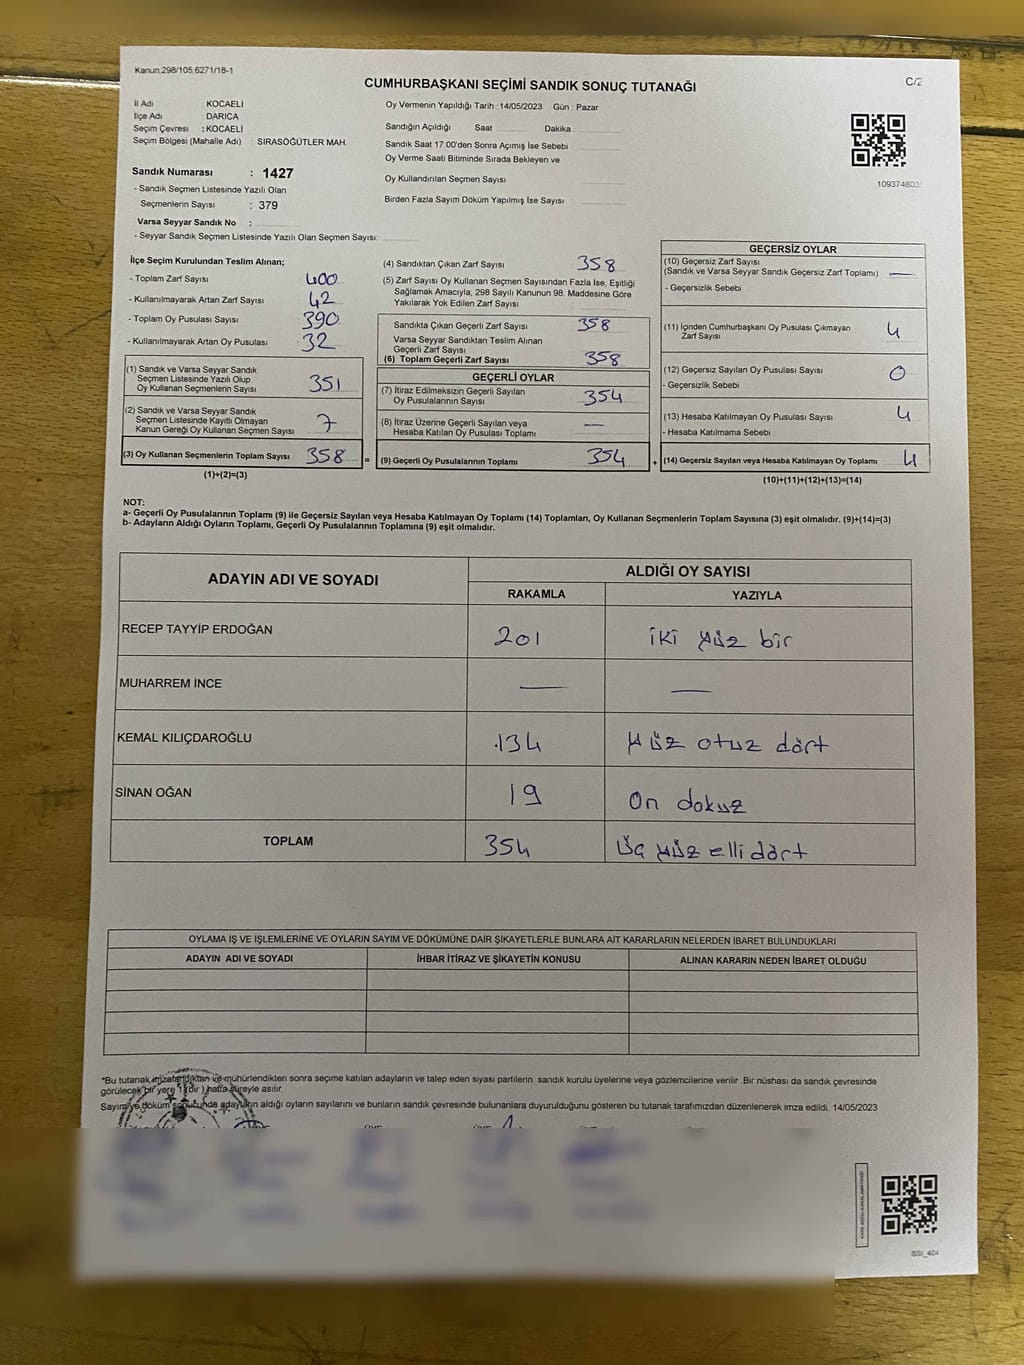 Kanun:298/105,6271/18-1
CUMHURBAŞKANI SEÇİMİ SANDIK SONUÇ TUTANAĞI
C/2
İl Adı KOCAELİ
İlçe Adı : DARICA
Seçim Çevresi : KOCAELİ
Seçim Bölgesi (Mahalle Adı) : SIRASÖĞÜTLER MAH.
Oy Vermenin Yapıldığı Tarih : 14/05/2023 Gün : Pazar
Sandığın Açıldığı Saat Dakika
Sandık Saat 17:00'den Sonra Açımış İse Sebebi
Oy Verme Saati Bitiminde Sırada Bekleyen ve
Oy Kullandırılan Seçmen Sayısı
Birden Fazla Sayım Döküm Yapılmış İse Sayısı
109374803
Sandık Numarası : 1427
- Sandık Seçmen Listesinde Yazılı Olan
Seçmenlerin Sayısı : 379
Varsa Seyyar Sandık No :
- Seyyar Sandık Seçmen Listesinde Yazılı Olan Seçmen Sayısı:
İlçe Seçim Kurulundan Teslim Alınan;
- Toplam Zarf Sayısı 400
- Kullanılmayarak Artan Zarf Sayısı 42
- Toplam Oy Pusulası Sayısı 390
- Kullanılmayarak Artan Oy Pusulası 32
(1) Sandık ve Varsa Seyyar Sandık
Seçmen Listesinde Yazılı Olup
Oy Kullanan Seçmenlerin Sayısı 351
(2) Sandık ve Varsa Seyyar Sandık
Seçmen Listesinde Kayıtlı Olmayan
Kanun Gereği Oy Kullanan Seçmen Sayısı 7
(3) Oy Kullanan Seçmenlerin Toplam Sayısı 358 =
(1)+(2)=(3)
(4) Sandıktan Çıkan Zarf Sayısı 358
(5) Zarf Sayısı Oy Kullanan Seçmen Sayısından Fazla İse, Eşitliği
Sağlamak Amacıyla; 298 Sayılı Kanunun 98. Maddesine Göre
Yakılarak Yok Edilen Zarf Sayısı
Sandıkta Çıkan Geçerli Zarf Sayısı 358
Varsa Seyyar Sandıktan Teslim Alınan
Geçerli Zarf Sayısı
(6) Toplam Geçerli Zarf Sayısı 358
GEÇERLİ OYLAR
(7) İtiraz Edilmeksizin Geçerli Sayılan
Oy Pusulalarının Sayısı 354
(8) İtiraz Üzerine Geçerli Sayılan veya
Hesaba Katılan Oy Pusulası Toplamı —
(9) Geçerli Oy Pusulalarının Toplamı 354 +
GEÇERSİZ OYLAR
(10) Geçersiz Zarf Sayısı
(Sandık ve Varsa Seyyar Sandık Geçersiz Zarf Toplamı) —
- Geçersizlik Sebebi
(11) İçinden Cumhurbaşkanı Oy Pusulası Çıkmayan
Zarf Sayısı 4
(12) Geçersiz Sayılan Oy Pusulası Sayısı 0
- Geçersizlik Sebebi
(13) Hesaba Katılmayan Oy Pusulası Sayısı 4
- Hesaba Katılmama Sebebi
(14) Geçersiz Sayılan veya Hesaba Katılmayan Oy Toplamı 4
(10)+(11)+(12)+(13)=(14)
NOT:
a- Geçerli Oy Pusulalarının Toplamı (9) ile Geçersiz Sayılan veya Hesaba Katılmayan Oy Toplamı (14) Toplamları, Oy Kullanan Seçmenlerin Toplam Sayısına (3) eşit olmalıdır. (9)+(14)=(3)
b- Adayların Aldığı Oyların Toplamı, Geçerli Oy Pusulalarının Toplamına (9) eşit olmalıdır.
ADAYIN ADI VE SOYADI ALDIĞI OY SAYISI
RAKAMLA YAZIYLA
RECEP TAYYİP ERDOĞAN 201 iki yüz bir
MUHARREM İNCE — —
KEMAL KILIÇDAROĞLU 134 yüz otuz dört
SİNAN OĞAN 19 On dokuz
TOPLAM 354 Üç yüz elli dört
OYLAMA İŞ VE İŞLEMLERİNE VE OYLARIN SAYIM VE DÖKÜMÜNE DAİR ŞİKAYETLERLE BUNLARA AİT KARARLARIN NELERDEN İBARET BULUNDUKLARI
ADAYIN ADI VE SOYADI İHBAR İTİRAZ VE ŞİKAYETİN KONUSU ALINAN KARARIN NEDEN İBARET OLDUĞU
*Bu tutanak imzalandıktan ve mühürlendikten sonra seçime katılan adayların ve talep eden siyasi partilerin sandık kurulu üyelerine veya gözlemcilerine verilir. Bir nüshası da sandık çevresinde
görülecek bir yere 1 (bir ) hafta süreyle asılır.
Sayım ve döküm sonucunda adayların aldığı oyların sayılarını ve bunların sandık çevresinde bulunanlara duyurulduğunu gösteren bu tutanak tarafımızdan düzenlenerek imza edildi. 14/05/2023
SSI_404